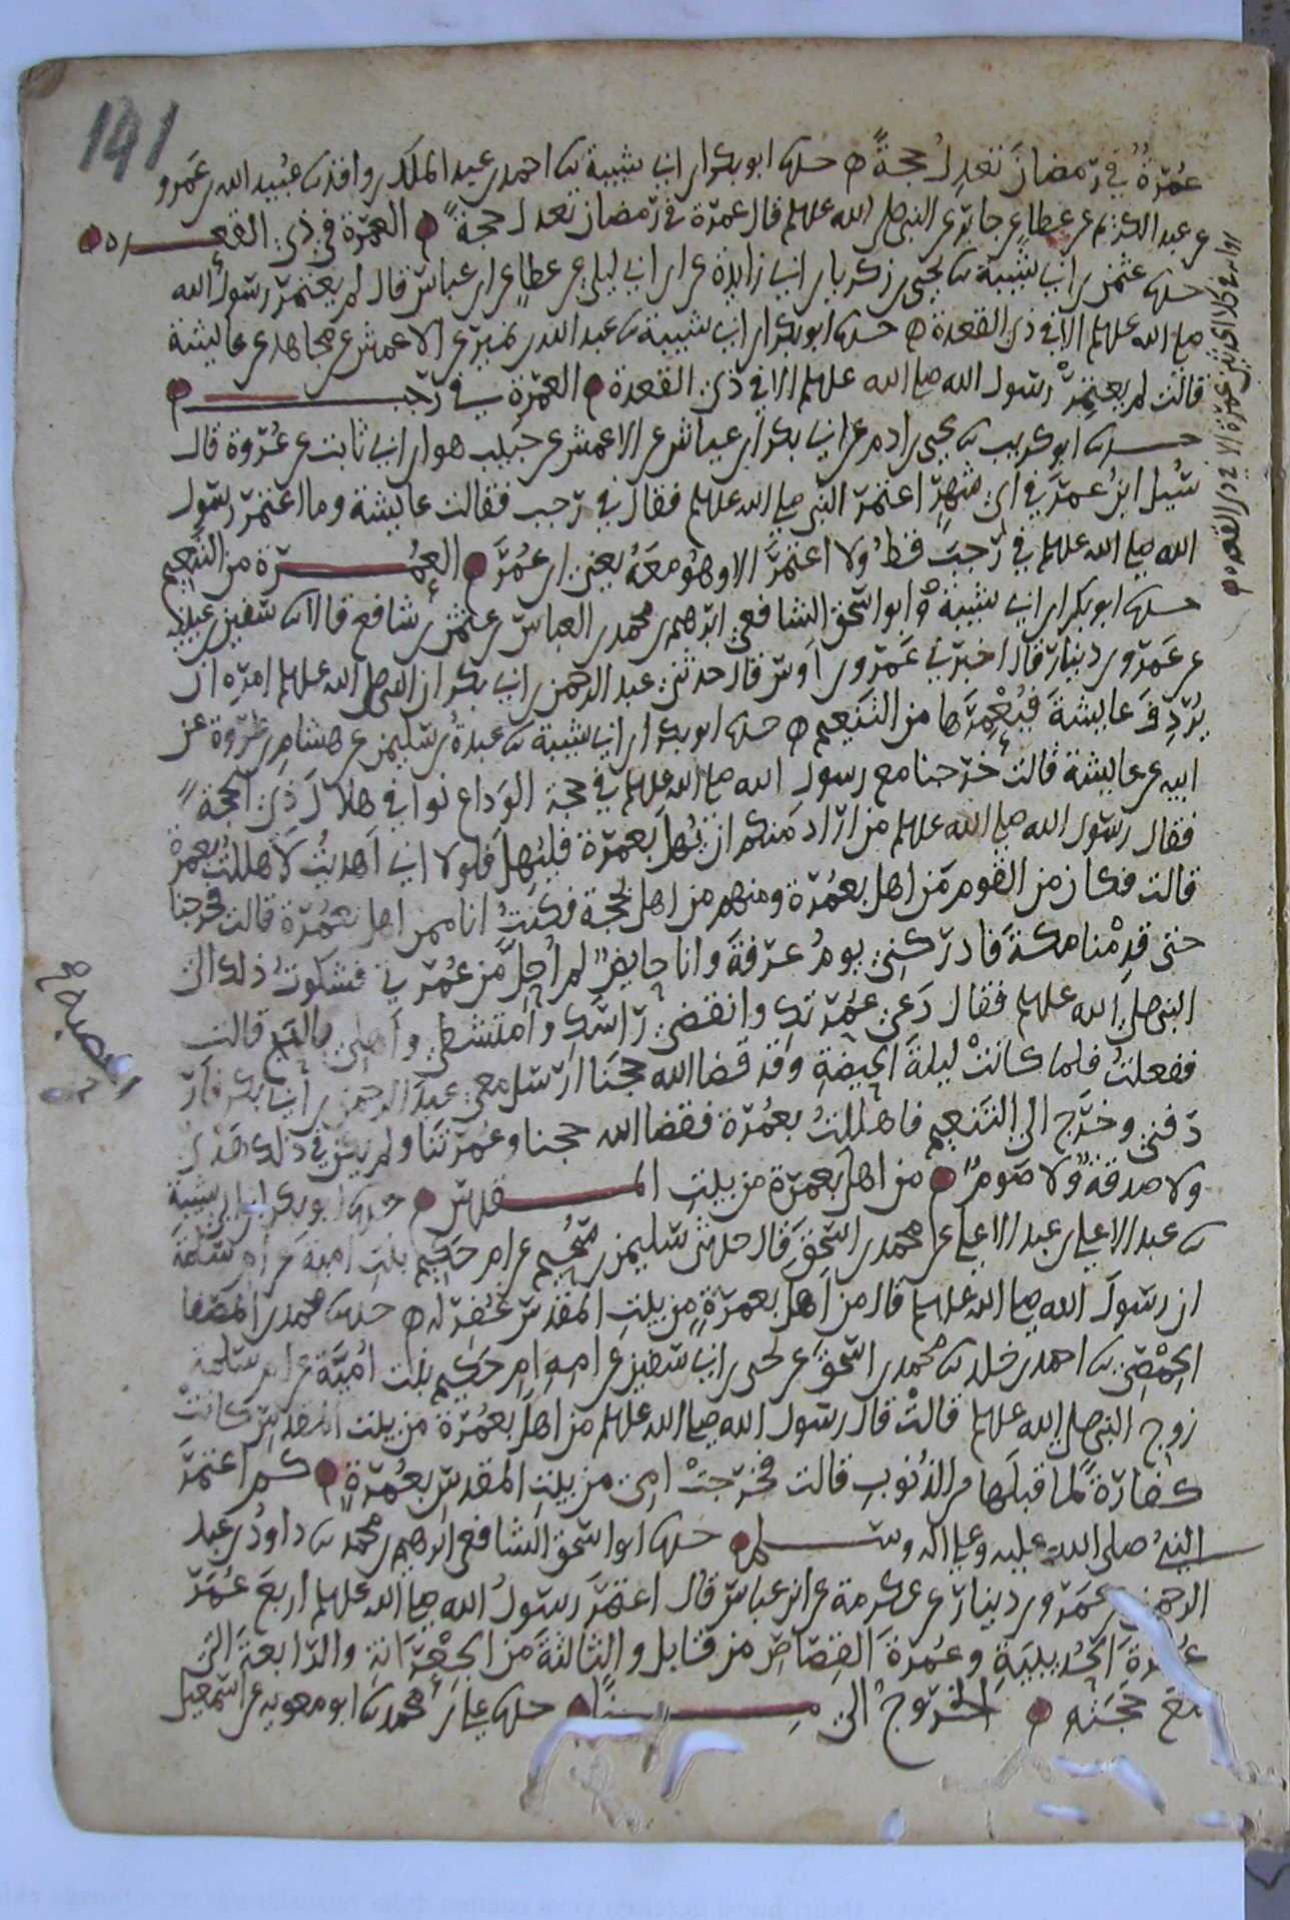 141
عُمْرَةٌ في رَمضانَ تَعْدِلُ حجةً ه حدثنا ابو بكر ابن ابي شيبة ثنا احمد بن عبد الملك بن واقد ثنا عُبيد الله بن عَمرو
عن عبد الكريم عن عطاء عن جابر عن النبي صلى الله عليه وسلم قال عمرة في رَمضان تعدل حجةً العُمرَة في ذي القعـــده
حدثنا عثمن بن ابي شيبة ثنا يحيى بن زكريا بن ابي زايدة عن ابن ابي ليلى عن عطاء عن ابن عباس قال لم يعتمر رسولُ الله
صلى الله عليه وسلم الا في ذي القعدة ه حدثنا ابو بكر ابن ابي شيبة ثنا عبد الله بن نمير عن الاعمش عن مجاهد عن عايشة
قالت لم يعتمِرْ رسول الله صلى الله عليه وسلم الا في ذي القعدة العمْرَة في رَجـــب
حدثنا ابو كريب ثنا يحيى بن ادم عن ابي بكر ابن عياش عن الاعمش عن حَبيب هو ابن ابي ثابت عن عُرْوة قال
سُيل ابنُ عمرَ في اي شهرٍ اعتمرَ النبي صلى الله عليه وسلم فقال في رَجب فقالت عايشة وما اعتمرَ رسول
الله صلى الله عليه وسلم في رَجبَ قطُ ولا اعتمرَ الا وهُو معَهُ يعني ابن عُمَرَ العُمـــرَة من التنعيم
حدثنا ابو بكر ابن ابي شيبة وابو اسحق الشافعي ابرهيم بن محمد بن العباس بن عثمن بن شافع قالا ثنا سفين بن عيينة
عن عَمرو بن دينار قال اخبرني عَمرو بن اَوس قال حدثني عبد الرحمن بن ابي بكر ان النبي صلى الله عليه وسلم امره ان
يُردِفَ عايشةَ فيُعْمِرَها من التنعيم ه حدثنا ابو بكر ابن ابي شيبة ثنا عبدةُ بن سليمن عن هشام بن عُروة عن
ابيه عن عايشة قالت خَرجنا مع رسول الله صلى الله عليه وسلم في حجة الوَداع نوافي هلالَ ذي الحجة
فقال رسول الله صلى الله عليه وسلم من ارَاد منكم ان يُهلّ بعمرَة فليُهلّ فلولا اني اَهديتُ لاَهللتُ بعمرَة
قالت فكان من القوم مَن اهل بعمُرَة ومنهم من اهل بحجة فكنتُ انا ممن اهل بعمُرَة قالت فخرجنا
حتى قدِمْنا مكةَ فادرَكني يومُ عرَفةَ وانا حايض لم اَحِلَّ من عُمْرَتي فشكوتُ ذلك الى
النبي صلى الله عليه وسلم فقال دَعي عُمرَتك وانقضي رَاسَكِ وامتشطي واَهلي بالحج قالت
ففعلتُ فلما كانتْ ليلةَ الحَصبةِ وقد قضا الله حجنا ارسل معي عبدَ الرحمن بن ابي بكر فارْ
دَفني وخرَج الى التنعيم فاهللتُ بعمُرَة فقضا الله حجنا وعمُرتنا ولم يكن في ذلك هَديٌ
ولا صدقةٌ ولا صَومٌ من اهلّ بعمرَة من بيت المـــقدس حدثنا ابو بكر ابن ابي شيبة
ثنا عبد الاعلى بن عبد الاعلى عن محمد بن اسحق قال حدثني سليمن بن سُحيم عن ام حَكيم بنت امية عن ام سلمَة
ان رسولَ الله صلى الله عليه وسلم قال من اَهلّ بعمرَةٍ من بيت المقدس غُفِرَ له ه حدثنا محمد بن المصَفا
الحِمْصي ثنا احمد بن خلد ثنا محمد بن اسحق عن يحيى بن ابي سفين عن امه ام حَكيم بنت اُميَّة عن ام سلمة
زوج النبي صلى الله عليه وسلم قالتْ قال رسول الله صلى الله عليه وسلم من اهلّ بعُمْرَة من بيت المقدس كانتْ
كفارَةً لما قبلَها من الذنوبِ قالت فخرَجتْ امي من بيت المقدس بعُمْرَةٍ كم اعتمَرَ
النبيُ صلى الله عليه وعلى اله وســـلم حدثنا ابو اسحق الشافعي ابرهيم بن محمد ثنا داودُ بن عبد
الرحمن عن عَمْرو بن دينار عن عكرمة عن ابن عباس قال اعتمرَ رسولُ الله صلى الله عليه وسلم اربعَ عُمَرٍ
عُمْرَةَ الحُديبيَةِ وعُمرَةَ القِصَاصِ من قابل والثالثةَ من الجعْرَانة والرَّابعةَ التي
معَ حَجتهِ الخرُوجُ الى مِـــنًا حدثنا علي بن محمد ثنا ابو معوية عن اسمعيل
الحصبة صح